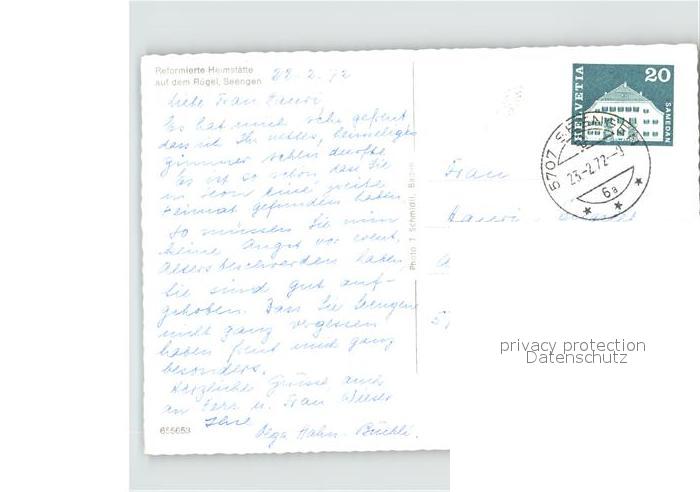 Reformierte Heimstätte
auf dem Rügel, Seengen
22.2.72
Liebe Frau Hauri
Es hat mich sehr gefreut
dass ich Ihr nettes, heimeliges
Zimmer sehen durfte
Es ist so schön dass Sie
in Seon eine zweite
Heimat gefunden haben,
so müssen Sie nun
keine Angst vor event.
Altersbeschwerden haben,
Sie sind gut auf-
gehoben. Dass Sie Seengen
nicht ganz vergessen
haben freut mich ganz
besonders.
Herzliche Grüsse auch
an Herr u. Frau Wieser
Ihre
Olga Hahn-Büchli.
655653
Photo T. Schmidli, Baden
HELVETIA
20
SAMEDAN
5707 SEENGEN
23.-2.72.-9
6a
Frau
Hauri
57
privacy protection
Datenschutz